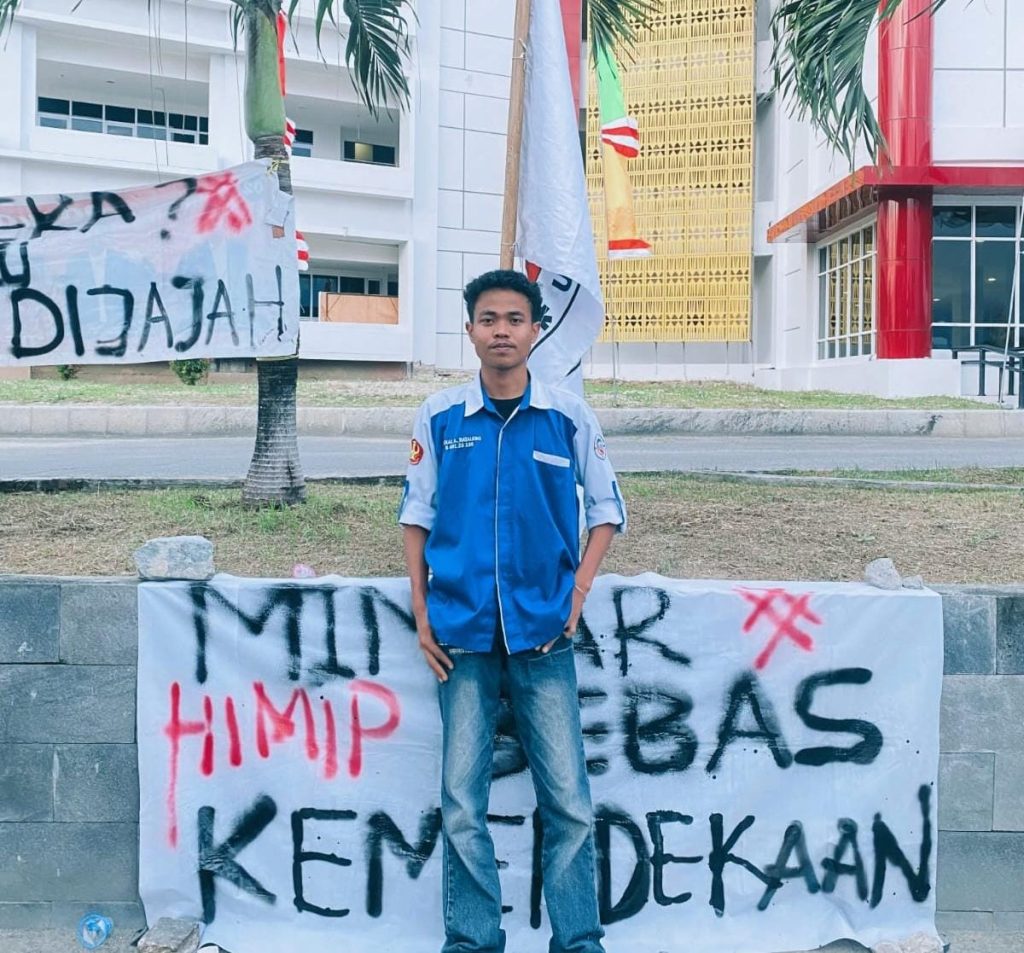 EKA ?
DIJAJAH
MIMBAR
HIMIP BEBAS
KEMERDEKAAN